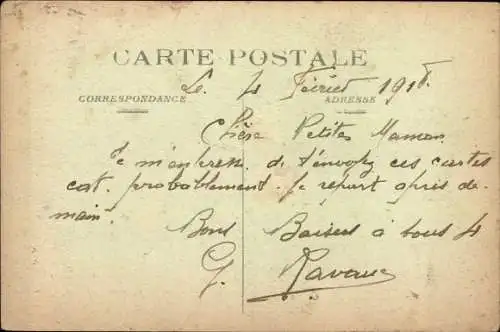 CARTE POSTALE
CORRESPONDANCE
ADRESSE
Le 4 Février 1918
Chère Petites Maman
Je m'enpresse de t'envoyer ces cartes
cat. probablement je repart après de-
main.
Bons Baisers à tous 4
G. Ravaux